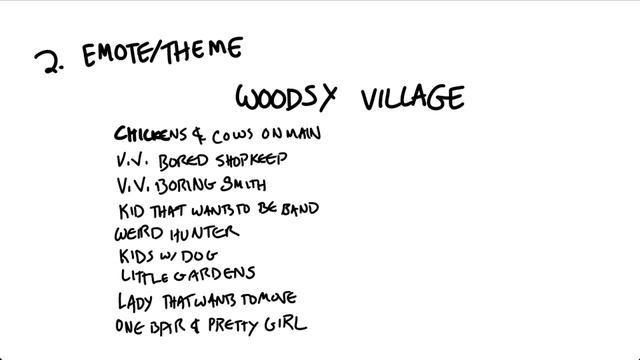 2. EMOTE/THEME
WOODSY VILLAGE
CHICKENS & COWS ON MAIN
V.V. BORED SHOPKEEP
V.V. BORING SMITH
KID THAT WANTS TO BE BAND
WEIRD HUNTER
KIDS W/ DOG
LITTLE GARDENS
LADY THAT WANTS TO MOVE
ONE BAR & PRETTY GIRL